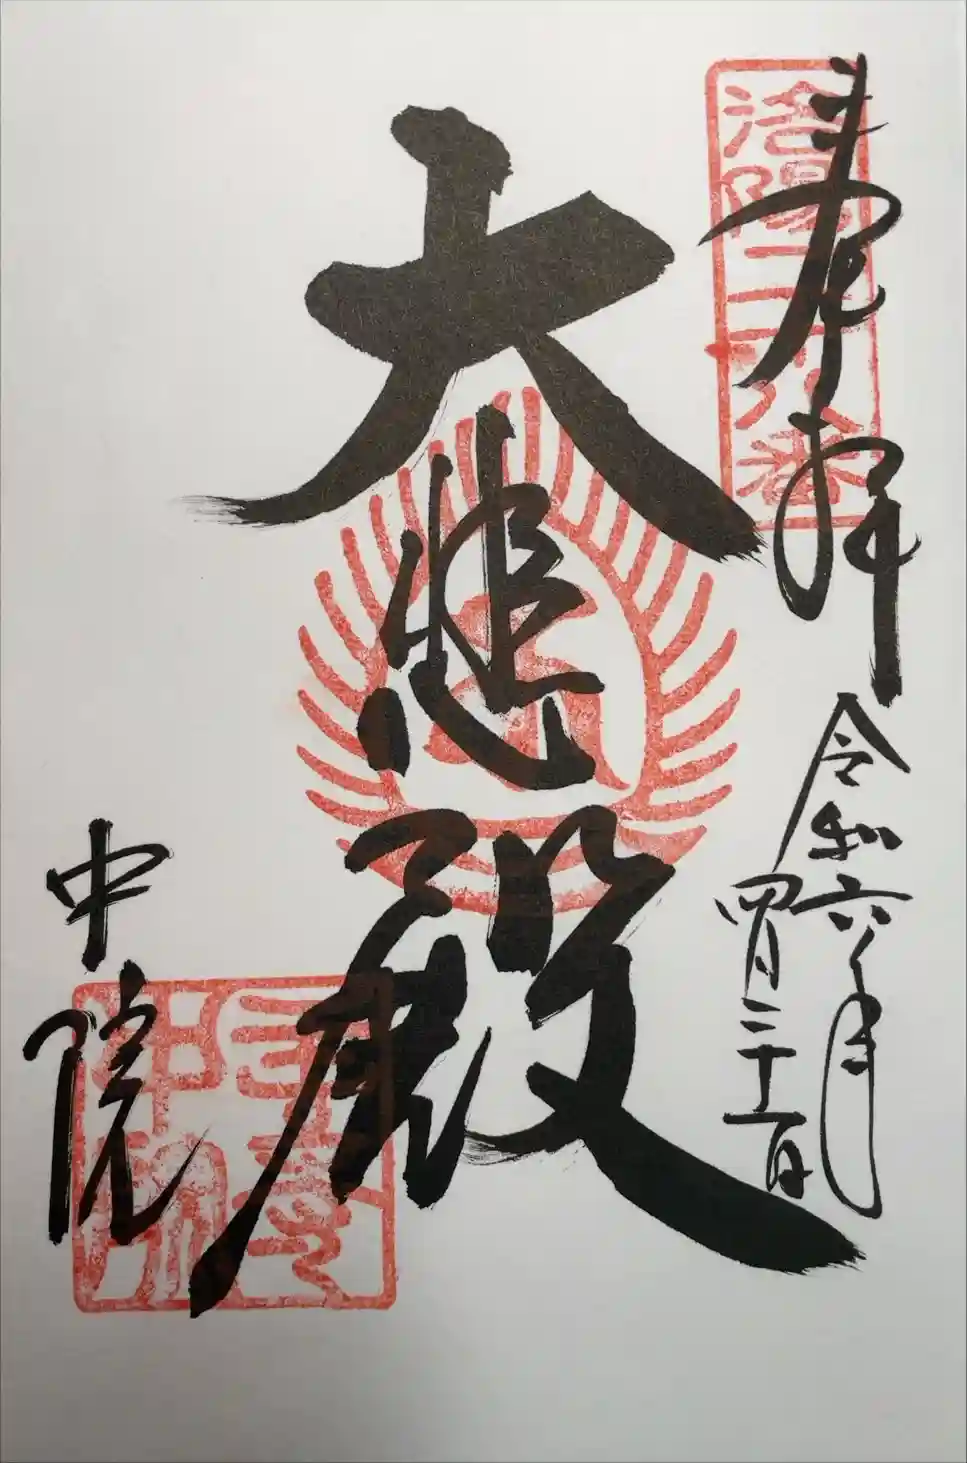 洛陽二十八番
奉拝
令和六年
四月二十一日
大悲殿
中院